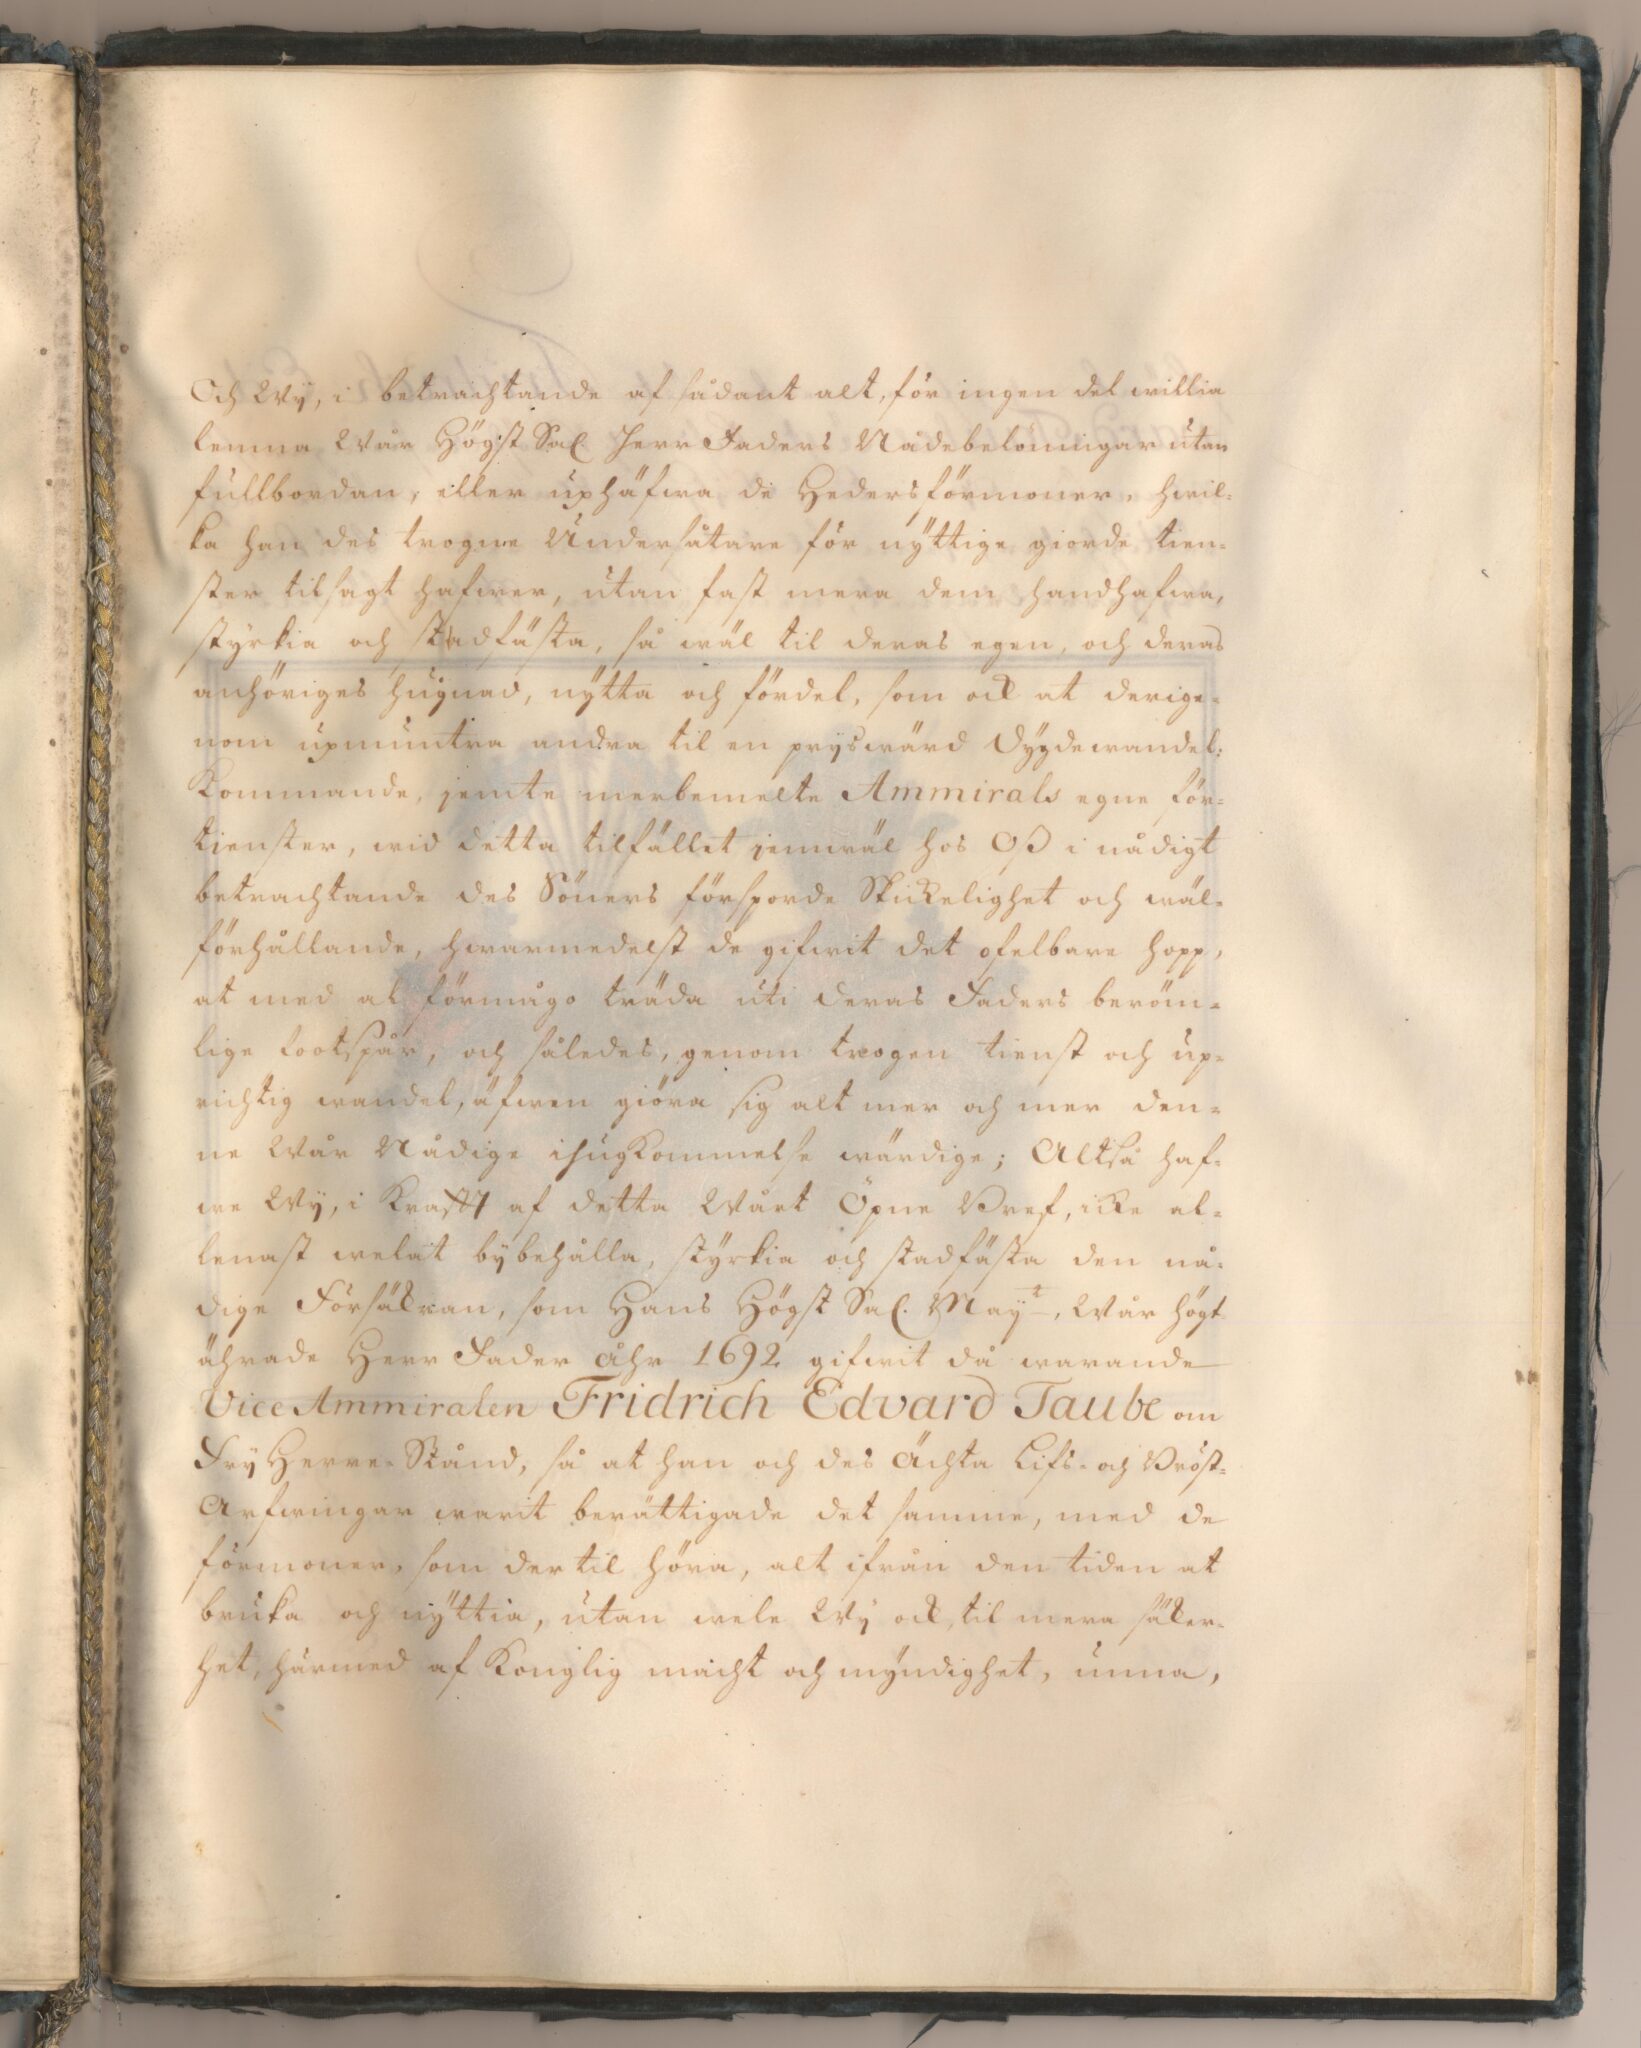 Och Wy, i betrachtande af sådant alt, för ingen del willia
lemna Wår Högst Sal. Herr Faders Nådebelöningar utan
fullbordan, eller uphäfwa de Hedersförmoner, hwil=
ka han des trogne Undersåtare för nyttige giorde tien=
ster tilsagt hafwer, utan fast mera dem handhafwa,
styrkia och stadfästa, så wäl til deras egen, och deras
anhöriges hugnad, nytta och fördel, som ock at derige=
nom upmuntra andra til en pryswärd Dygdewandel:
Kommande, jemte merbemelte Ammirals egne för=
tienster, wid detta tilfället jemwäl hos Oß i nådigt
betrachtande des Söners försporde Skickelighet och wäl=
förhållande, hwarmedelst de gifwit det ofelbare hopp,
at med al förmågo träda uti deras Faders beröm=
lige footspår, och således, genom trogen tienst och up=
richtig wandel, äfwen giöra sig alt mer och mer den=
ne Wår Nådige ihugkommelse wärdige; Altså haf=
we Wy, i Krafft af detta Wårt Öpne Bref, icke al=
lenast welat bybehålla, styrkia och stadfästa den nå=
dige Försäkran, som Hans Högst Sal. Mayt, Wår högt
ährade Herr Fader åhr 1692 gifwit då warande
Vice Ammiralen Fridrich Edvard Taube om
Fry Herre-Stånd, så at han och des ächta Lifs- och Bröst=
Arfwingar warit berättigade det samme, med de
förmoner, som der til höra, alt ifrån den tiden at
bruka och nyttia, utan wele Wy ock, til mera säker=
het, härmed af Konglig macht och myndighet, unna,